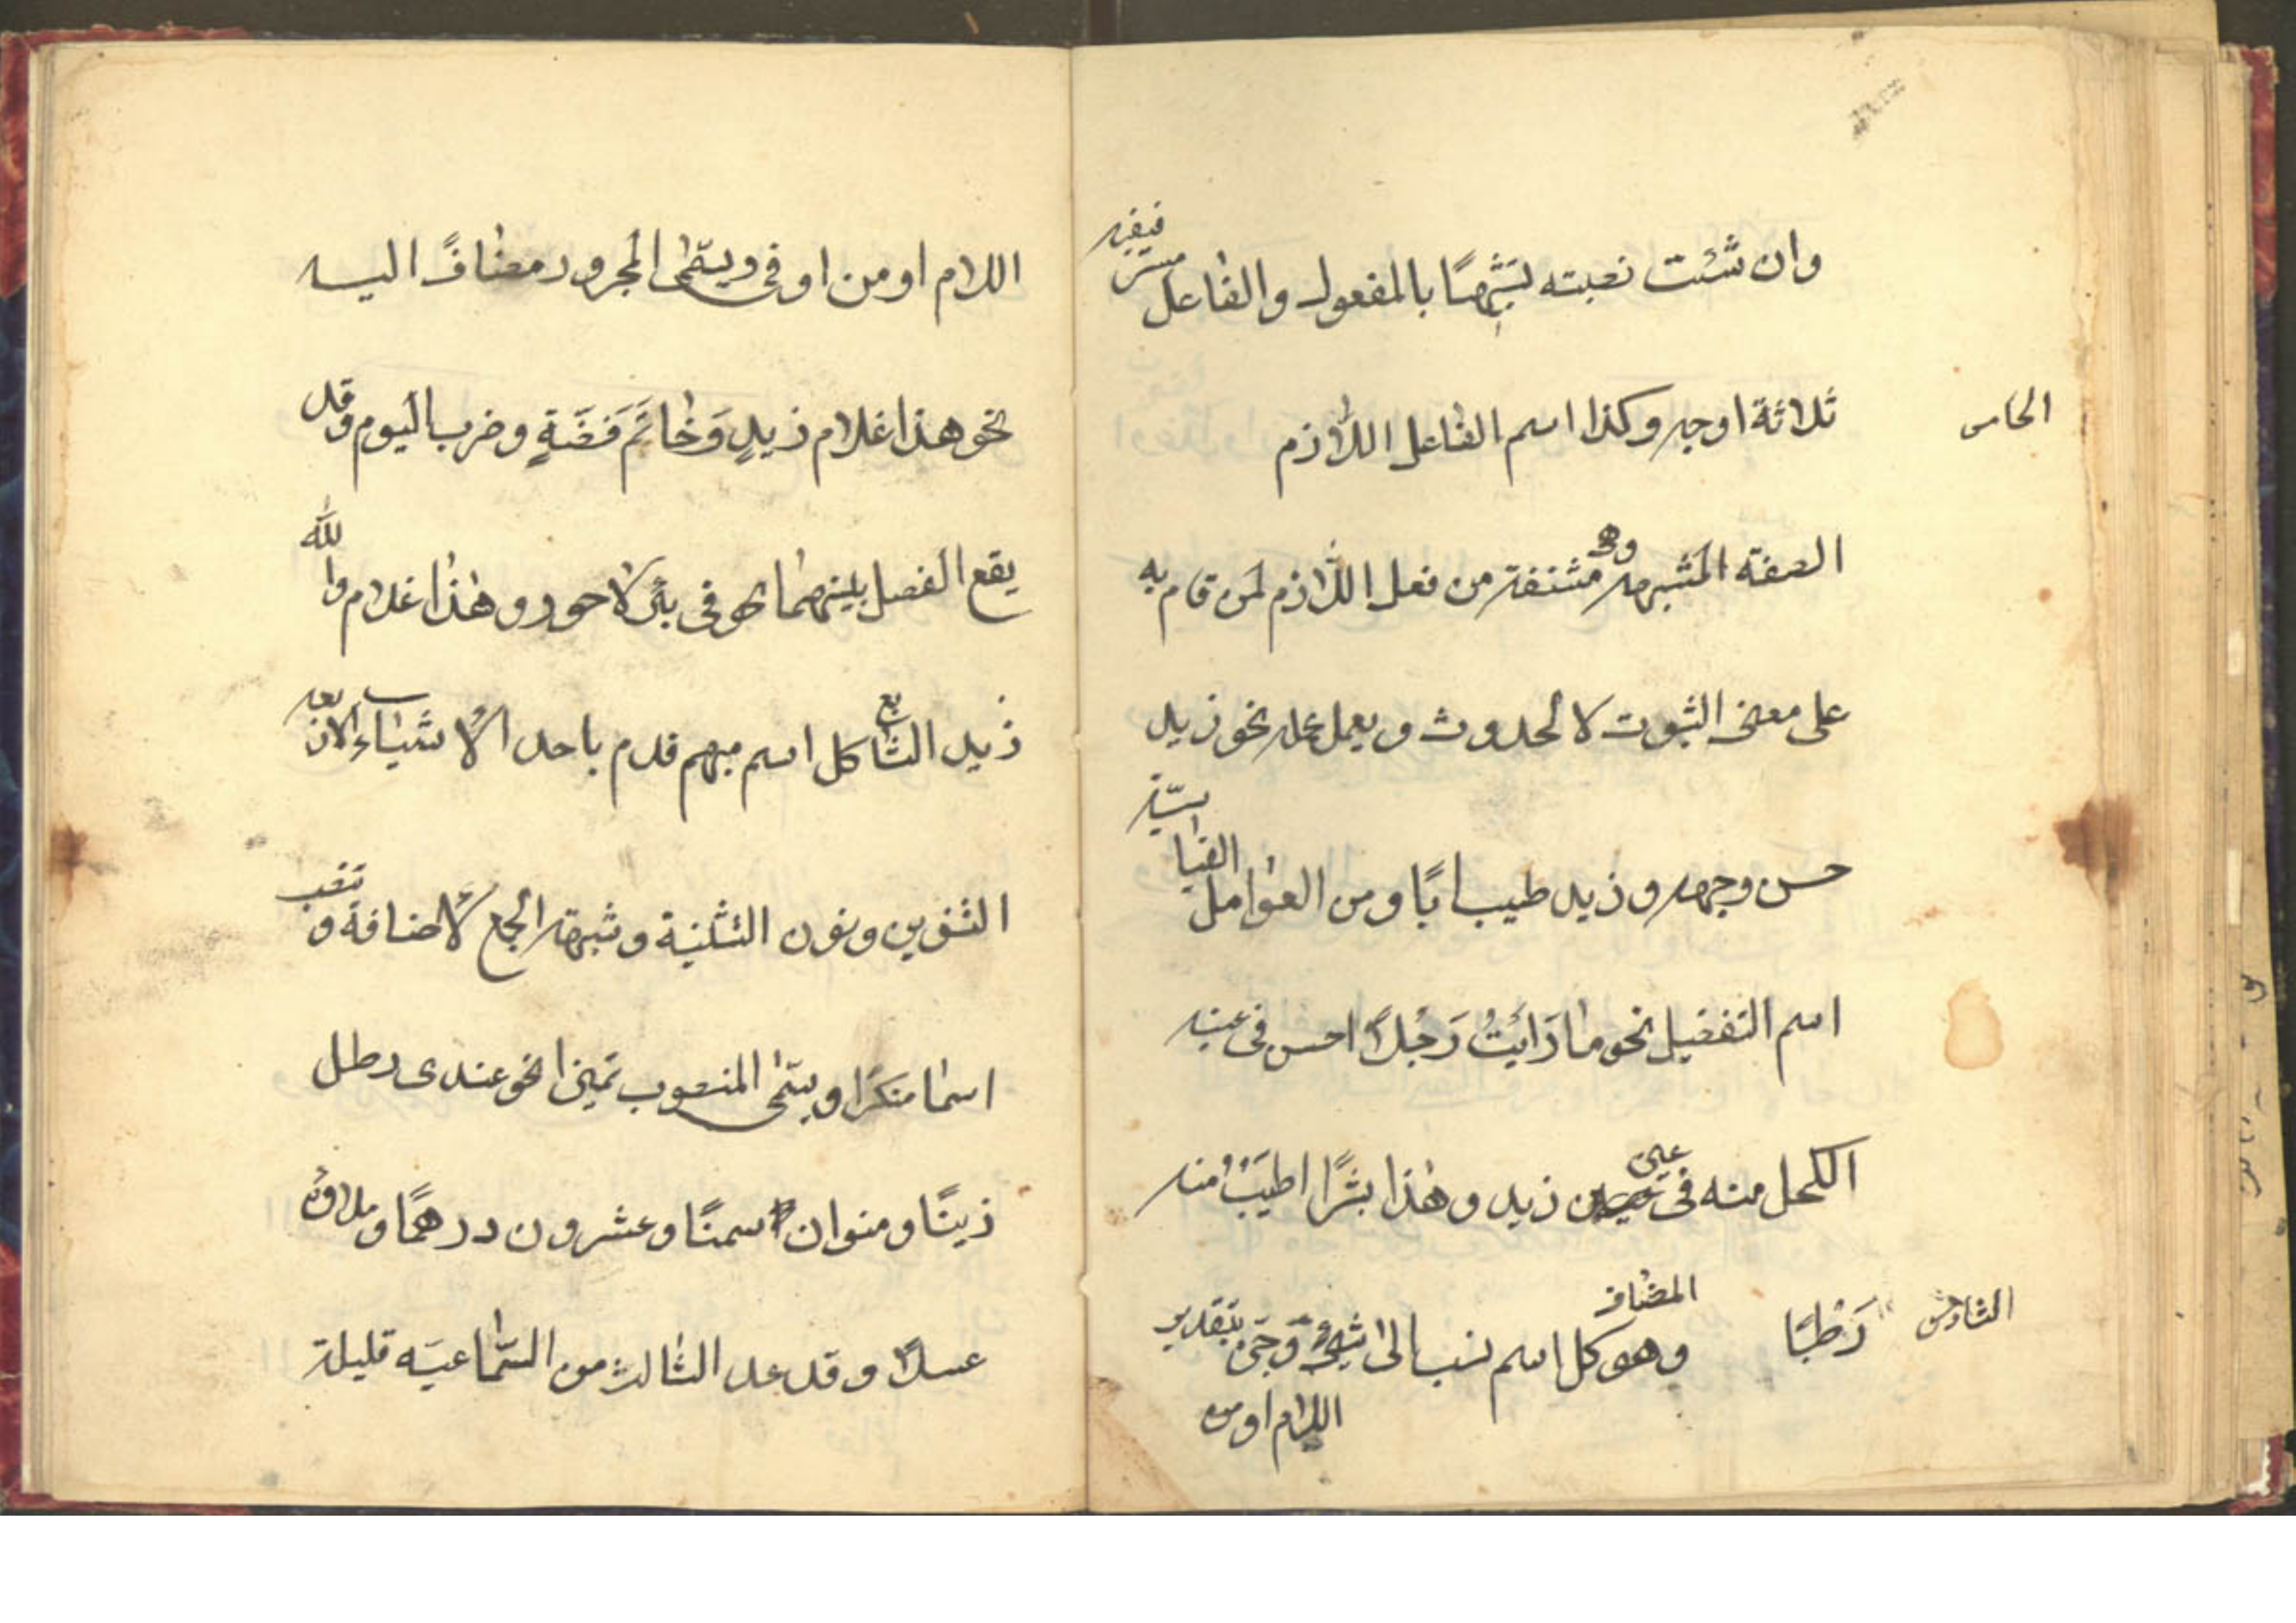 وان شئت نصبته تشبيهًا بالمفعول والفاعل مستتر ففيه
ثلاثة اوجه وكذا اسم الفاعل اللازم
الخامس
الصفة المشبهه وهى مشتقة من فعل اللازم لمن قام به
على معنى الثبوت لا الحدوث ويعمل عمله نحو زيد
حسن وجهه وزيد طيب ابًا ومن العوامل القياسيّة
اسم التفضيل نحو ما رَايَتُ رَجُلاً احسن فى عينه
الكحل منه فى عين زيد وهذا بسْرًا اطيَبُ منه
رَطْبًا
السّادس
المضاف
وهو كل اسم نسب الى شيئ وجرّ بتقدير
اللام او من
اللام او من او فى ويسمّى المجرور مضافًا اليه
نحو هذا غلام زيدٍ وَخاتَم فَضّةٍ وضرب اليوم وقد
يقع الفصل بينهما كهو فى بئر لا حور وهذا غلام والله
زيد السّابع كل اسم مبهم قدم باحد الاشياء الاربعه
التنوين ونون التثنية وشبهة الجمع لاضافة و تنصب
اسما منكرًا ويسمّى المنصوب تميزا نحو عندى رطل
زيتًا ومنوان سمنًا وعشرون درهمًا وملاؤه
عسلاً وقد عد الثالث من السّماعيّه قليلة